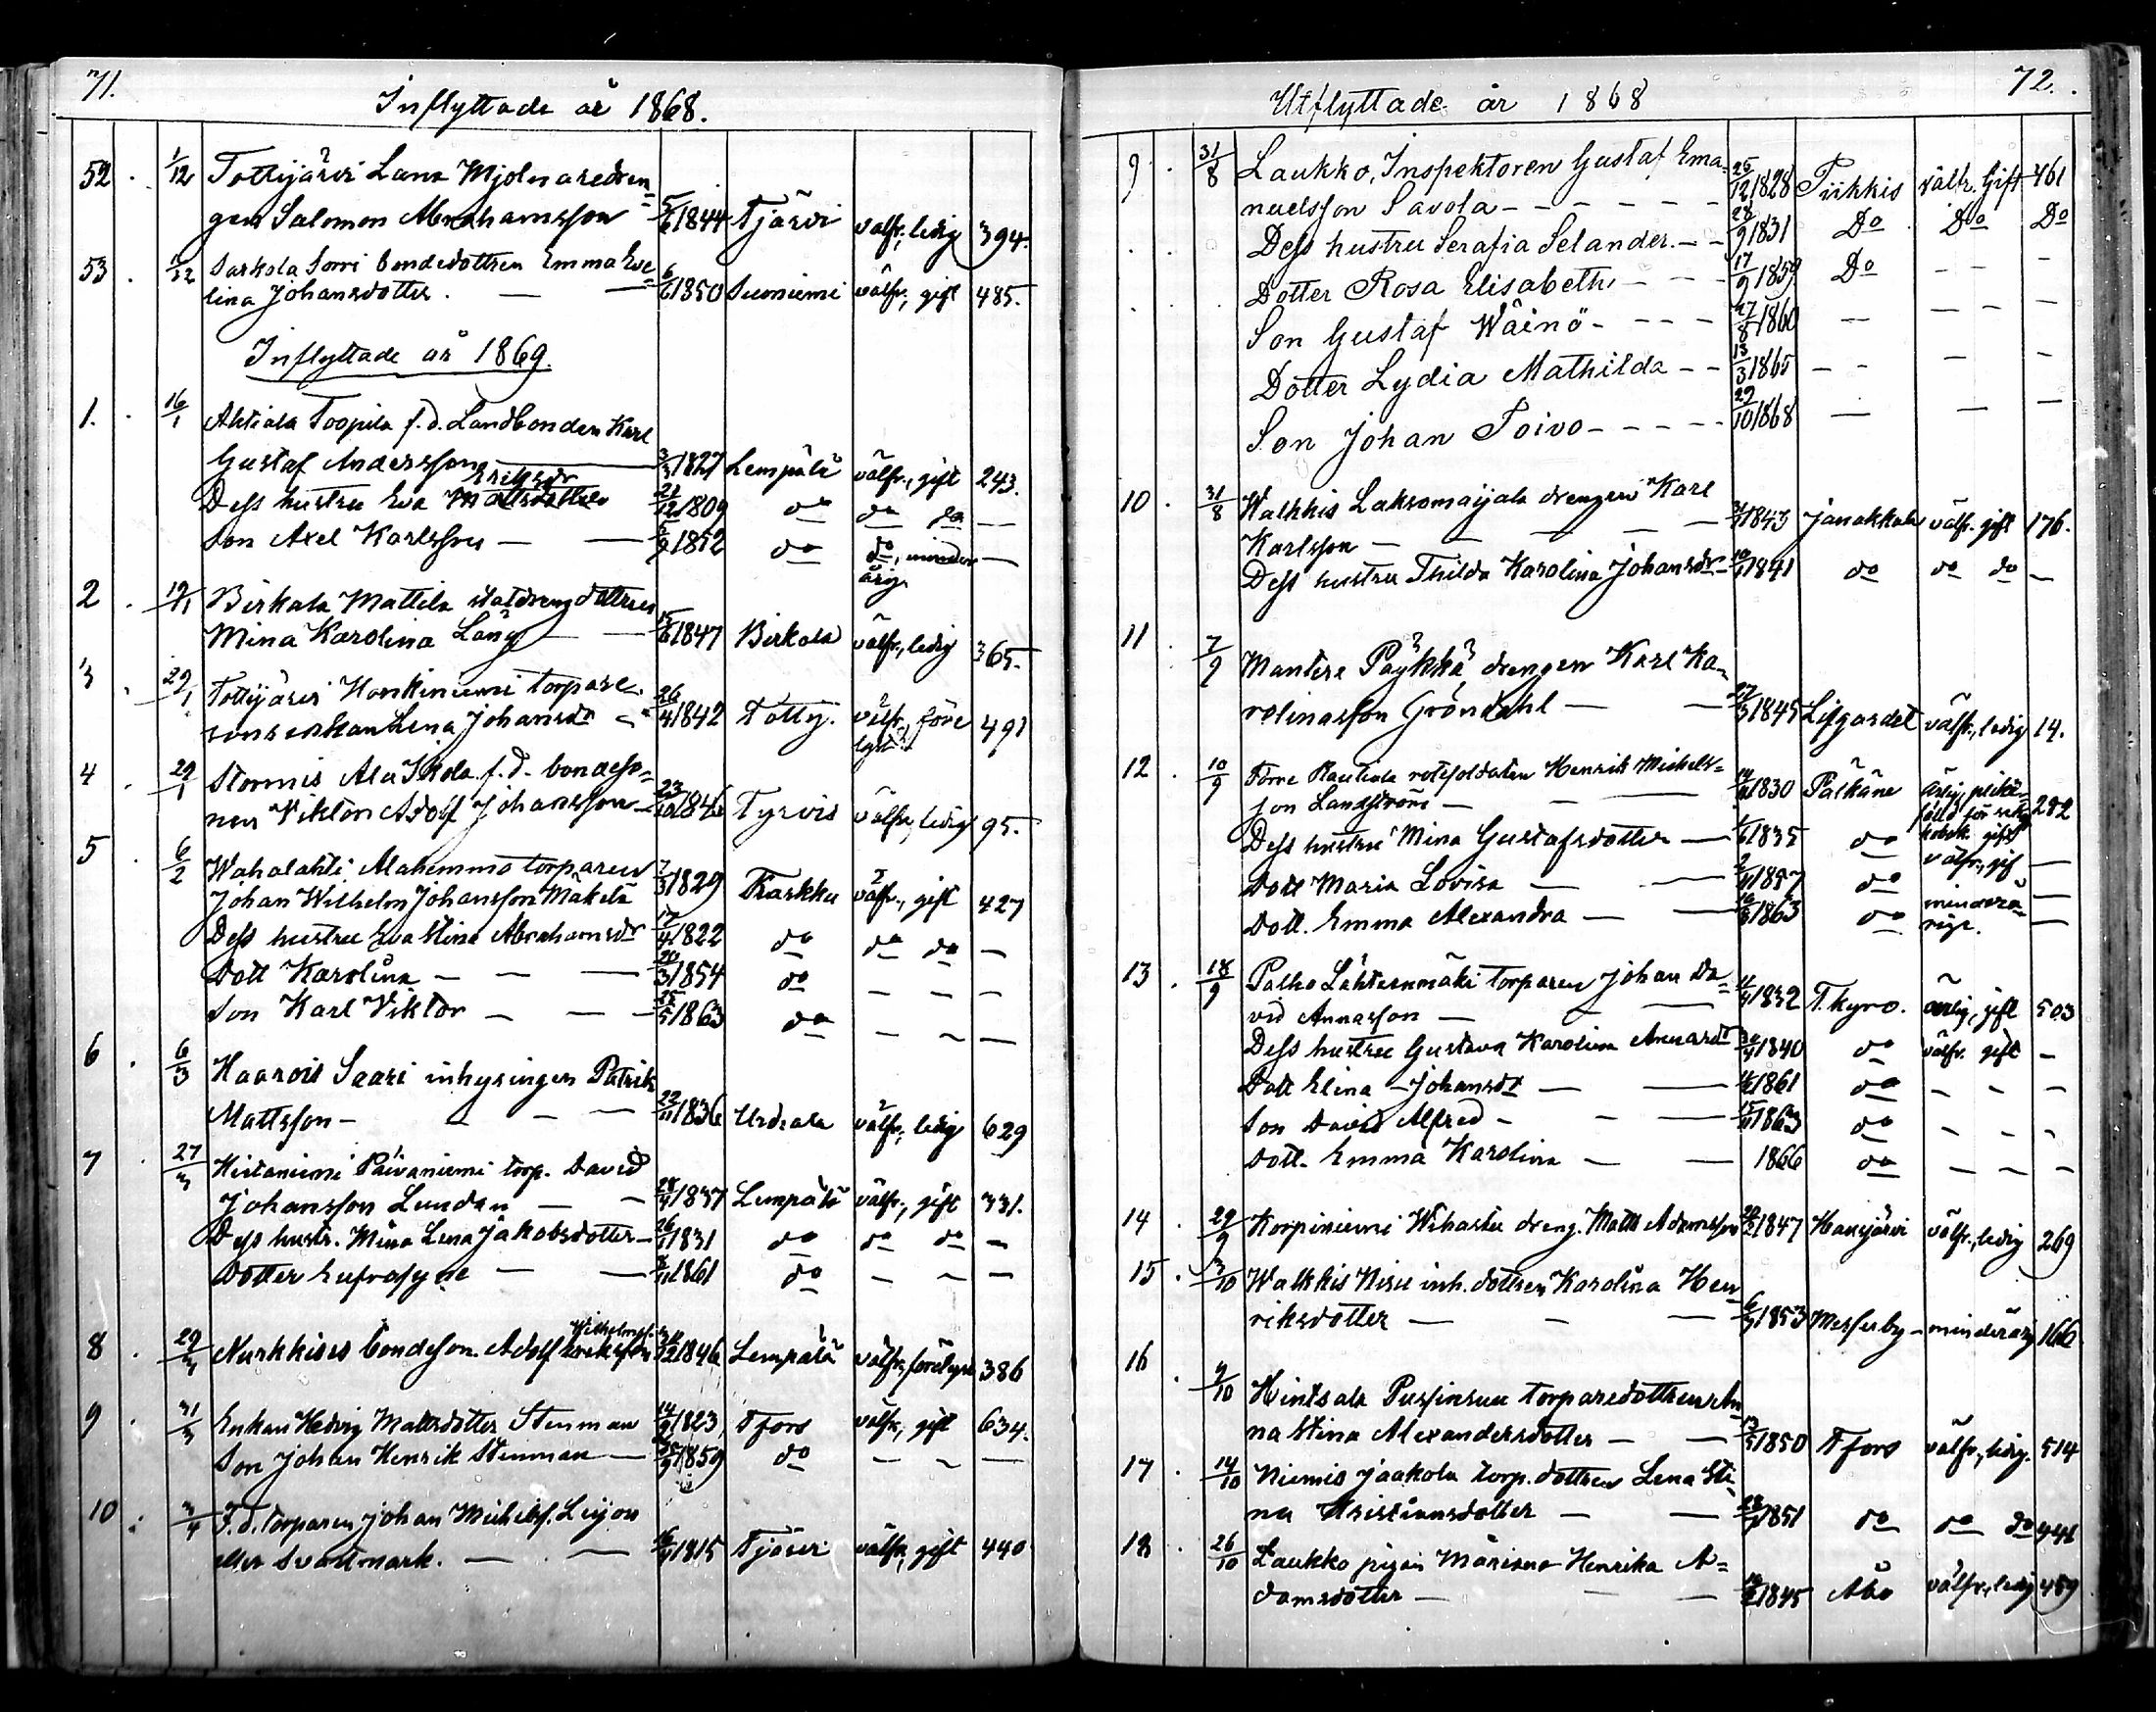 71.
Inflyttade år 1868.
52. 1/12 Tottijärvi Lana Mjölnaredren=
gen Salomon Abrahamsson 5/6 1844 Tjärvi välfr., ledig 394.
53. 1/12 Sarkola Sorri bondedottren Emma Eve=
lina Johansdotter. — — 6/6 1850 Suoniemi välfr., gift 485.
Inflyttade år 1869.
1. 16/1 Ahtiala Toopila f.d. Landbonden Karl
Gustaf Andersson 3/3 1827 Lempälä välfr., gift 243.
Eriksdr
Dess hustru Eva Mattsdotter 23/12 1809 do do do —
Son Axel Karlsson — — 5/9 1852 do do, minder —
årig
2. 19/1 Birkala Mattila statdrengdottren
Mina Karolina Läng — — 15/6 1847 Birkala välfr., ledig 365.
3. 29/1 Tottijärvi Honkiniemi torpare
sons enkan Lena Johansdr 26/4 1842 Totty. välfr., före 491
lyst
4. 29/1 Stormis Ala Ikola f.d. bondeso=
nen Viktor Adolf Johansson — 23/10 1846 Tyrvis välfr., ledig 95.
5. 6/2 Wahalahti Alahemmo torparen
Johan Wilhelm Johansson Mäkelä 7/3 1829 Karkku välfr., gift 427
Dess hustru Eva Stina Abrahamsdr 17/4 1822 do do do —
Dott Karolina — — — 20/3 1854 do — — —
Son Karl Viktor — — — 25/5 1863 do — — —
6. 6/3 Haarois Saari inhysingen Patrik
Mattsson — — — — 22/11 1836 Urdiala välfr., ledig 629
7. 27/3 Hiitaniemi Päiväniemi torp. David
Johansson Lundan — — 28/4 1837 Lempälä välfr., gift 331.
Dess hustr. Mina Lena Jakobsdotter — 26/1 1831 do do do —
Dotter Eufrosyne — — 8/11 1861 do — — —
Wilhelmss.
8. 29/3 Nurkkises bondeson Adolf Eriksson 1846 Lempälä välfr., förelyst 386
9. 31/3 Enkan Hedvig Mattsdotter Stenman 14/9 1823 Tfors välfr., gift 634.
Son Johan Henrik Stenman — 1859 do — — —
10. 3/4 F.d. torparen Johan Michelss. Leijon
eller Svartmark. — — — 1815 Tjärvi välfr., gift 440
72.
Utflyttade år 1868
9. 31/8 Laukko, Inspektoren Gustaf Ema=
nuelsson Savola — — — — — 25/12 1828 Piikkis välfr. Gift 461
Dess hustru Serafia Selander. — — 28/9 1831 Do Do Do
Dotter Rosa Elisabeth — — — 17/9 1859 Do — — —
Son Gustaf Wäinö — — — — 27/8 1860 — — — —
Dotter Lydia Mathilda — — 13/3 1865 — — — —
Son Johan Toivo — — — — — 29/10 1868 — — —
10. 31/8 Walkkis Laksomaijala drengen Karl
Karlsson — — — — 1843 Janakkala välfr. gift 176.
Dess hustru Thilda Karolina Johansdr — 1841 do do do —
11. 7/9 Mantere Päykkä drengen Karl Ka=
rolinasson Gröndahl — — 27/3 1845 Lifgardet välfr., ledig 14.
12. 10/9 Förre Rautiala rotesoldaten Henrik Michels=
son Landström — — — 1830 Pälkäne ärlig, 282
Dess hustru Mina Gustafsdotter — 1835 do välfr., gif —
Dott Maria Lovisa — — 1857 do minderå= —
Dott. Emma Alexandra — — 1863 do rige. —
13. 18/9 Palho Lähteenmäki torparen Johan Da=
vid Annasson — — 1832 T.kyro. ärlig, gift 503
Dess hustru Gustava Karolina 1840 do välfr. gift —
Dott Elina Johansdr — — 1861 do — — —
Son David Alfred — — — 1863 do — — —
Dott. Emma Karolina — — 1866 do — — —
14. 29/9 Korpiniemi Wihastu dreng. Matts Adamsson 1847 Hausjärvi välfr., ledig 269
15. 3/10 Walkkis Nisu inh. dottren Karolina Hen
riksdotter — — — 6/9 1853 Messuby — minderårig 166
16. 9/10 Hintsala Pussinsuu torparedottren An
na Stina Alexandersdotter — — 1850 Tfors välfr., ledig. 514
17. 14/10 Niemis Jaakola torp. dottren Lena Sti=
na Kristiansdotter — — 1851 do do do 441
18. 26/10 Laukko pigan Mariana Henrika A=
damsdotter — — — 1845 Åbo välfr., ledig 459